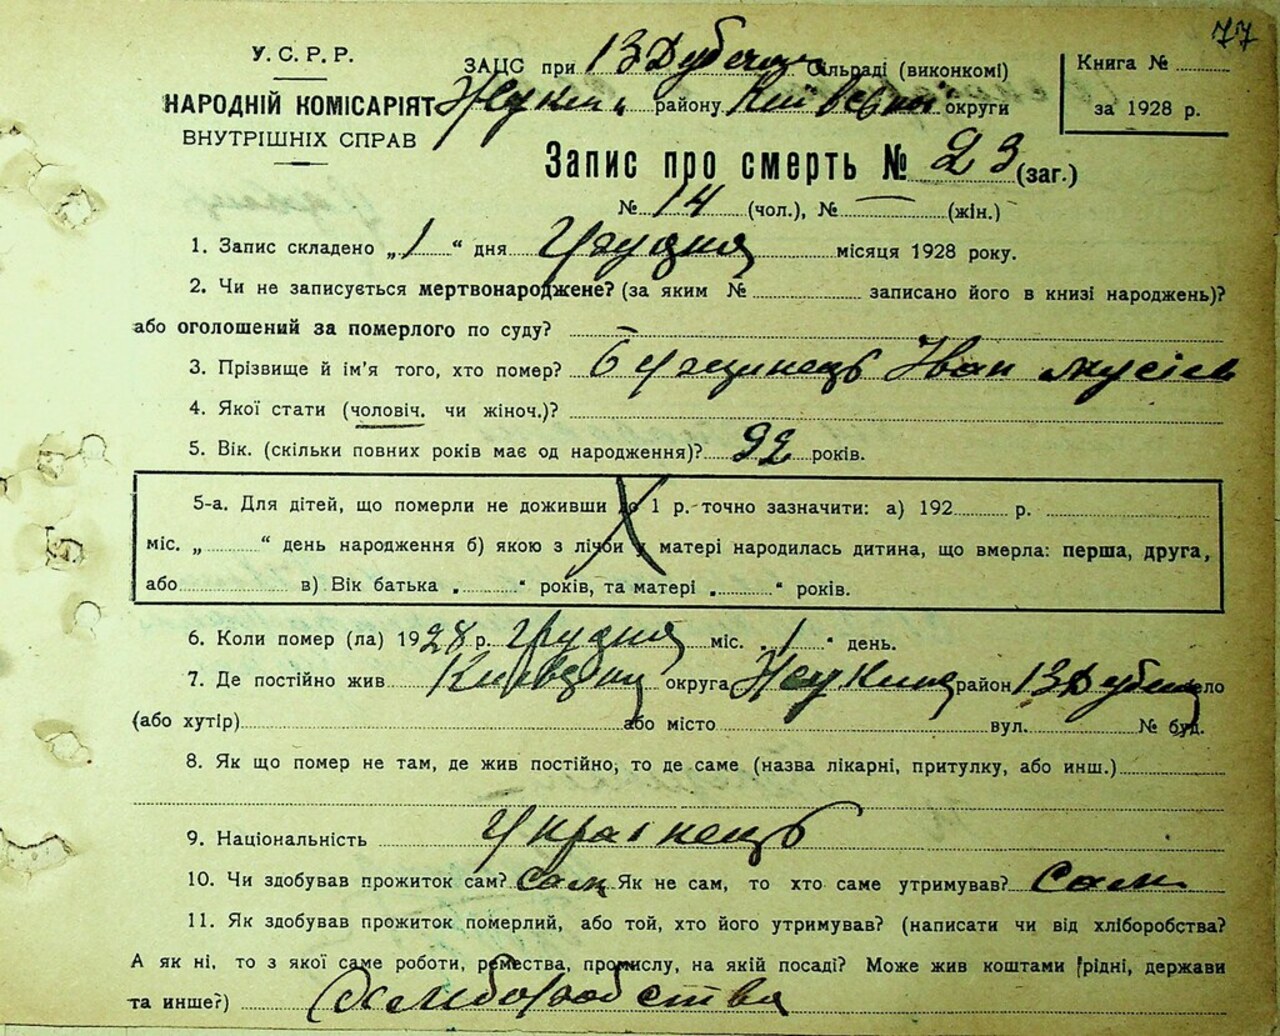 77
У. С. Р. Р.
НАРОДНІЙ КОМІСАРІЯТ
ВНУТРІШНІХ СПРАВ
ЗАЦС при В Дубечн. Сільраді (виконкомі)
району Київської округи
Книга №
за 1928 р.
Запис про смерть № 23 (заг.)
№ 14 (чол.), № — (жін.)
1. Запис складено „1“ дня Грудня місяця 1928 року.
2. Чи не записується мертвонароджене? (за яким № записано його в книзі народжень)?
або оголошений за померлого по суду? —
3. Прізвище й ім'я того, хто помер? Іван Мусієв
4. Якої стати (чоловіч. чи жіноч.)?
5. Вік. (скільки повних років має од народження)? 92 років.
5-а. Для дітей, що померли не доживши до 1 р. точно зазначити: а) 192 р.
міс. „ “ день народження б) якою з лічби у матері народилась дитина, що вмерла: перша, друга,
або в) Вік батька „ “ років, та матері „ “ років.
6. Коли помер (ла) 1928 р. грудня міс. „1“ день.
7. Де постійно жив округа район В Дубечн село
(або хутір) або місто вул. № буд.
8. Як що помер не там, де жив постійно, то де саме (назва лікарні, притулку, або инш.)
9. Національність Українець
10. Чи здобував прожиток сам? Сам Як не сам, то хто саме утримував? Сам
11. Як здобував прожиток померлий, або той, хто його утримував? (написати чи від хліборобства?
А як ні, то з якої саме роботи, ремества, промислу, на якій посаді? Може жив коштами рідні, держави
та инше?) Хліборобства